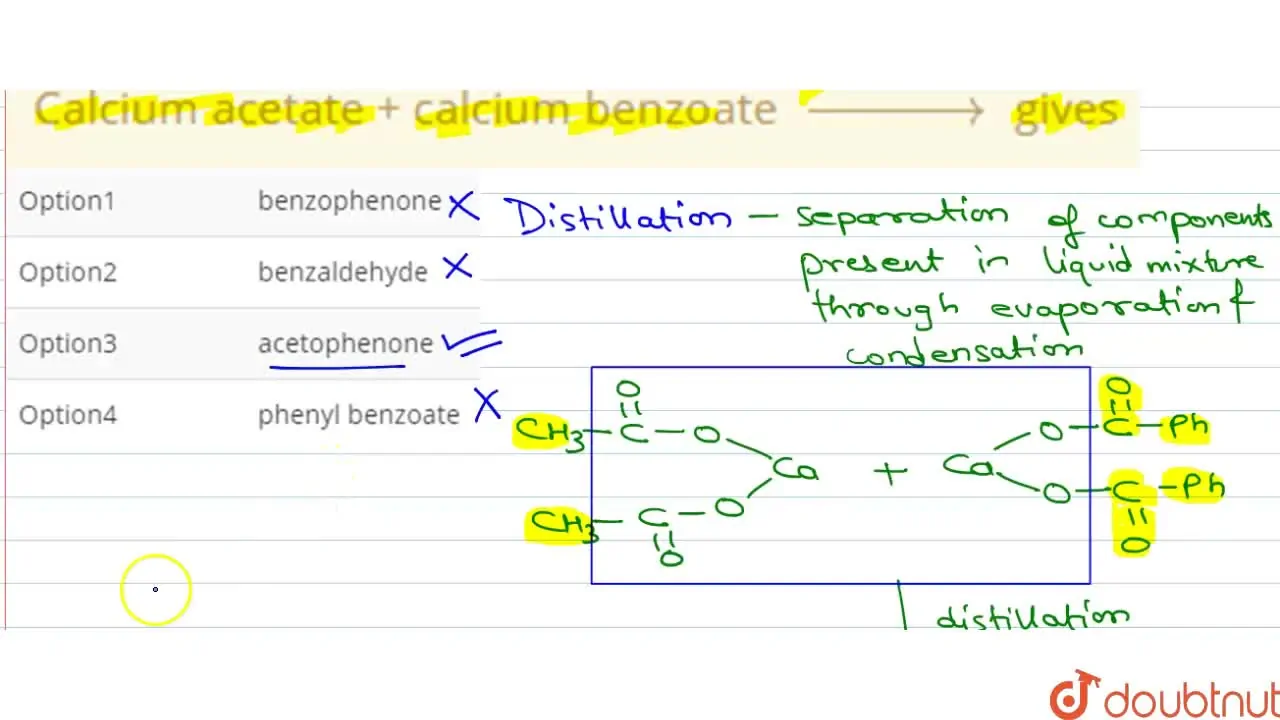 Calcium acetate + calcium benzoate ⟶ gives
Option1 benzophenone ×
Option2 benzaldehyde ×
Option3 acetophenone ✓
Option4 phenyl benzoate ×
Distillation — separation of components
present in liquid mixture
through evaporation &
condensation
O O
|| ||
CH3 — C — O O — C — Ph
Ca + Ca
CH3 — C — O O — C — Ph
|| ||
O O
distillation
doubtnut